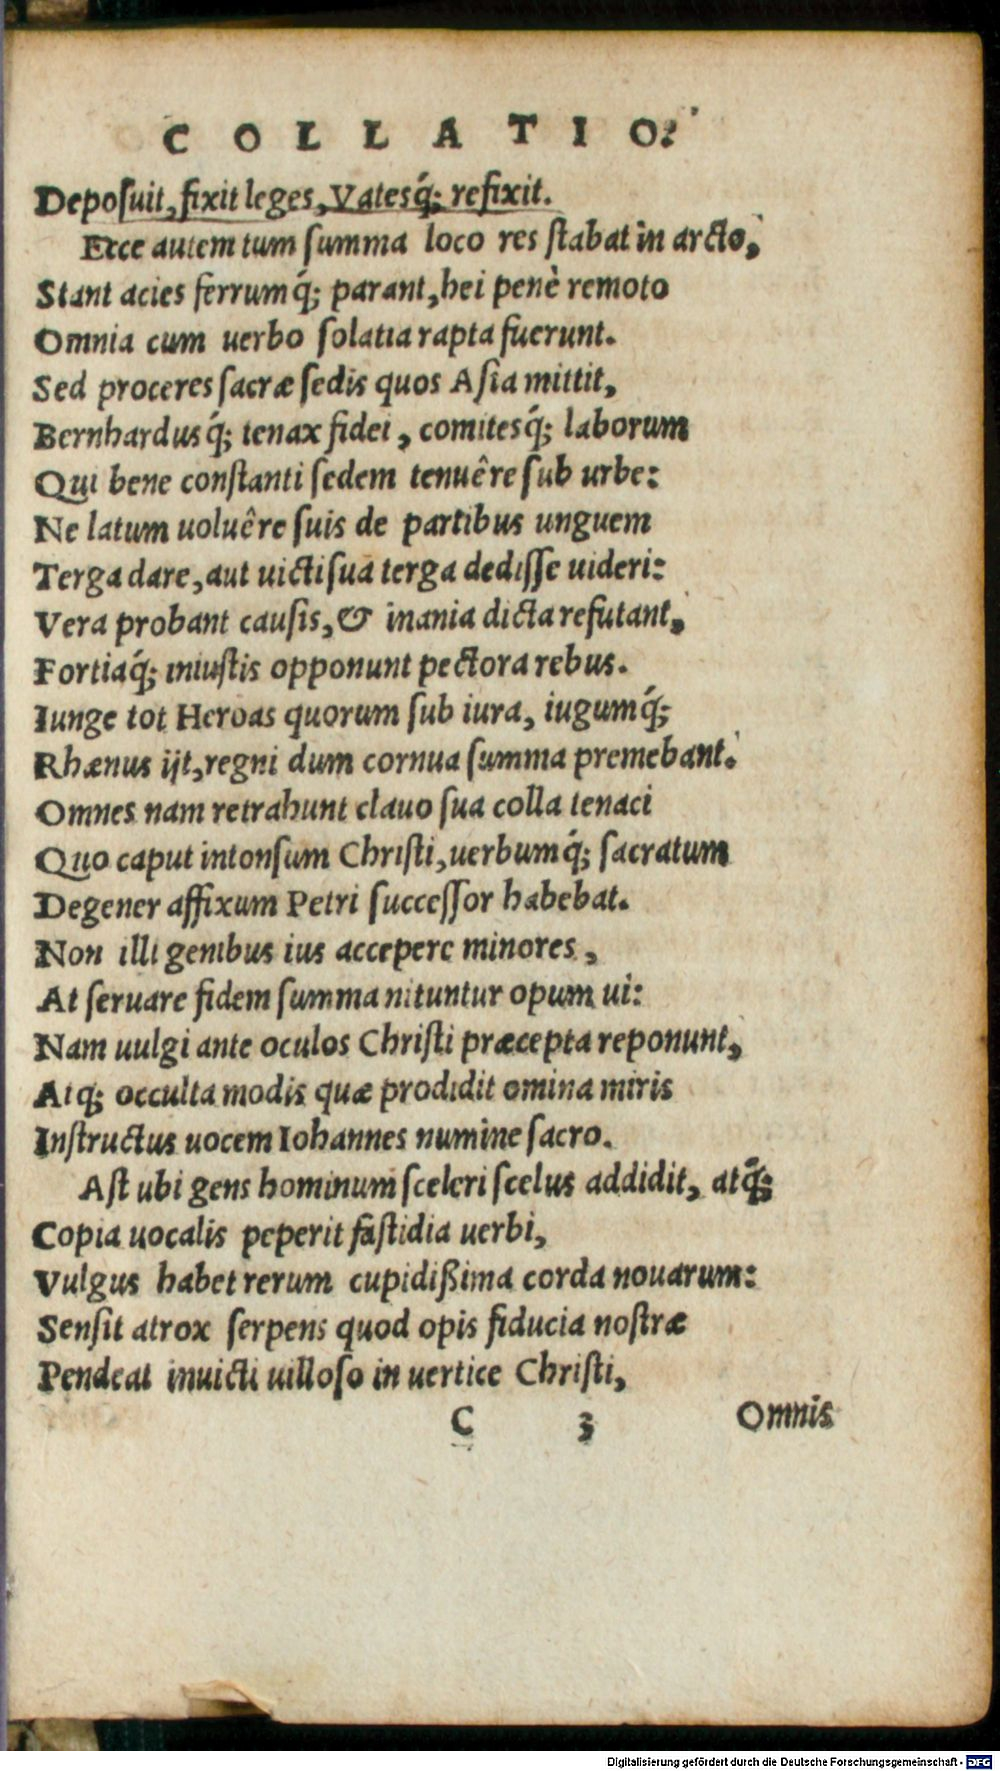 COLLATIO.
Depoſuit, fixit leges, Vatesq́; refixit.
Ecce autem tum ſumma loco res ſtabat in arcto,
Stant acies ferrumq́; parant, hei penè remoto
Omnia cum uerbo ſolatia rapta fuerunt.
Sed proceres ſacræ ſedis quos Aſia mittit,
Bernhardusq́; tenax fidei, comitesq́; laborum
Qui bene conſtanti ſedem tenuêre ſub urbe:
Ne latum uoluêre ſuis de partibus unguem
Terga dare, aut uicti ſua terga dediſſe uideri:
Vera probant cauſis, & inania dicta refutant,
Fortiaq́; iniuſtis opponunt pectora rebus.
Iunge tot Heroas quorum ſub iura, iugumq́;
Rhænus ijt, regni dum cornua ſumma premebant.
Omnes nam retrahunt clauo ſua colla tenaci
Quo caput intonſum Chriſti, uerbumq́; ſacratum
Degener affixum Petri ſucceſſor habebat.
Non illi genibus ius accepere minores,
At ſeruare fidem ſumma nituntur opum ui:
Nam uulgi ante oculos Chriſti præcepta reponunt,
Atq; occulta modis quæ prodidit omina miris
Inſtructus uocem Iohannes numine ſacro.
Aſt ubi gens hominum ſceleri ſcelus addidit, atq́;
Copia uocalis peperit faſtidia uerbi,
Vulgus habet rerum cupidißima corda nouarum:
Senſit atrox ſerpens quod opis fiducia noſtræ
Pendeat inuicti uilloſo in uertice Chriſti,
C 3 Omnis
Digitalisierung gefördert durch die Deutsche Forschungsgemeinschaft - DFG